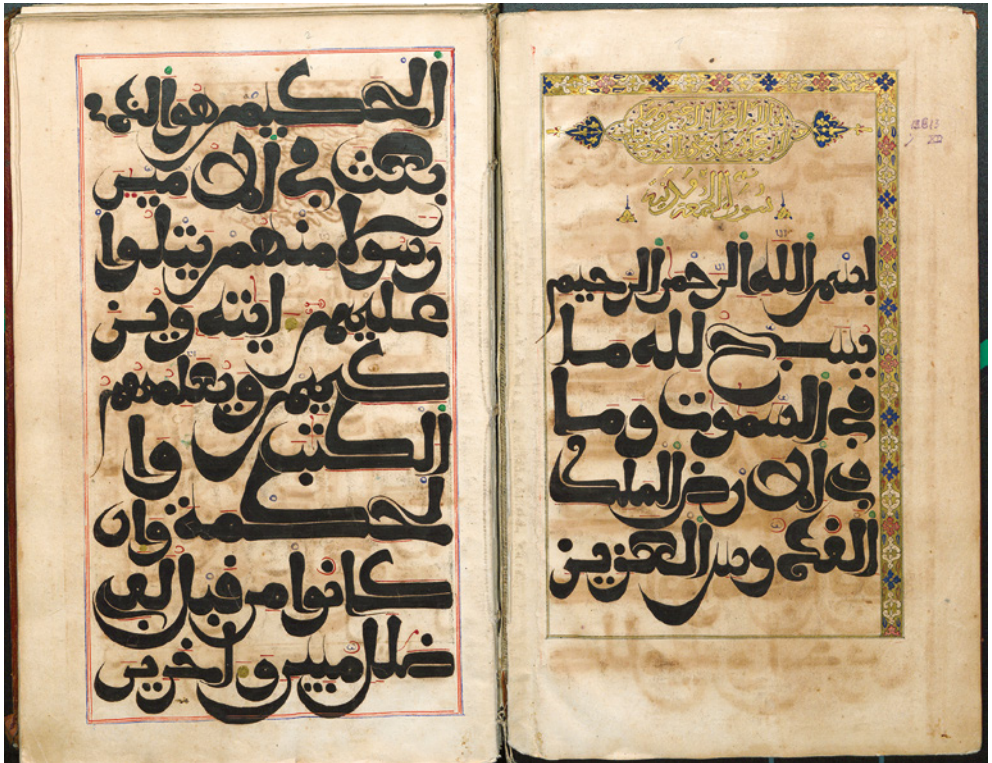 سورة الجمعة مدنية
بسم الله الرحمن الرحيم
يسبح لله ما
في السموت وما
في الارض الملك
القدوس العزيز
الحكيم هو الذي
بعث في الامين
رسولا منهم يتلوا
عليهم ايته ويز
كيهم ويعلمهم
الكتب وا
لحكمة وان
كانوا من قبل لفي
ضلل مبين واخرين